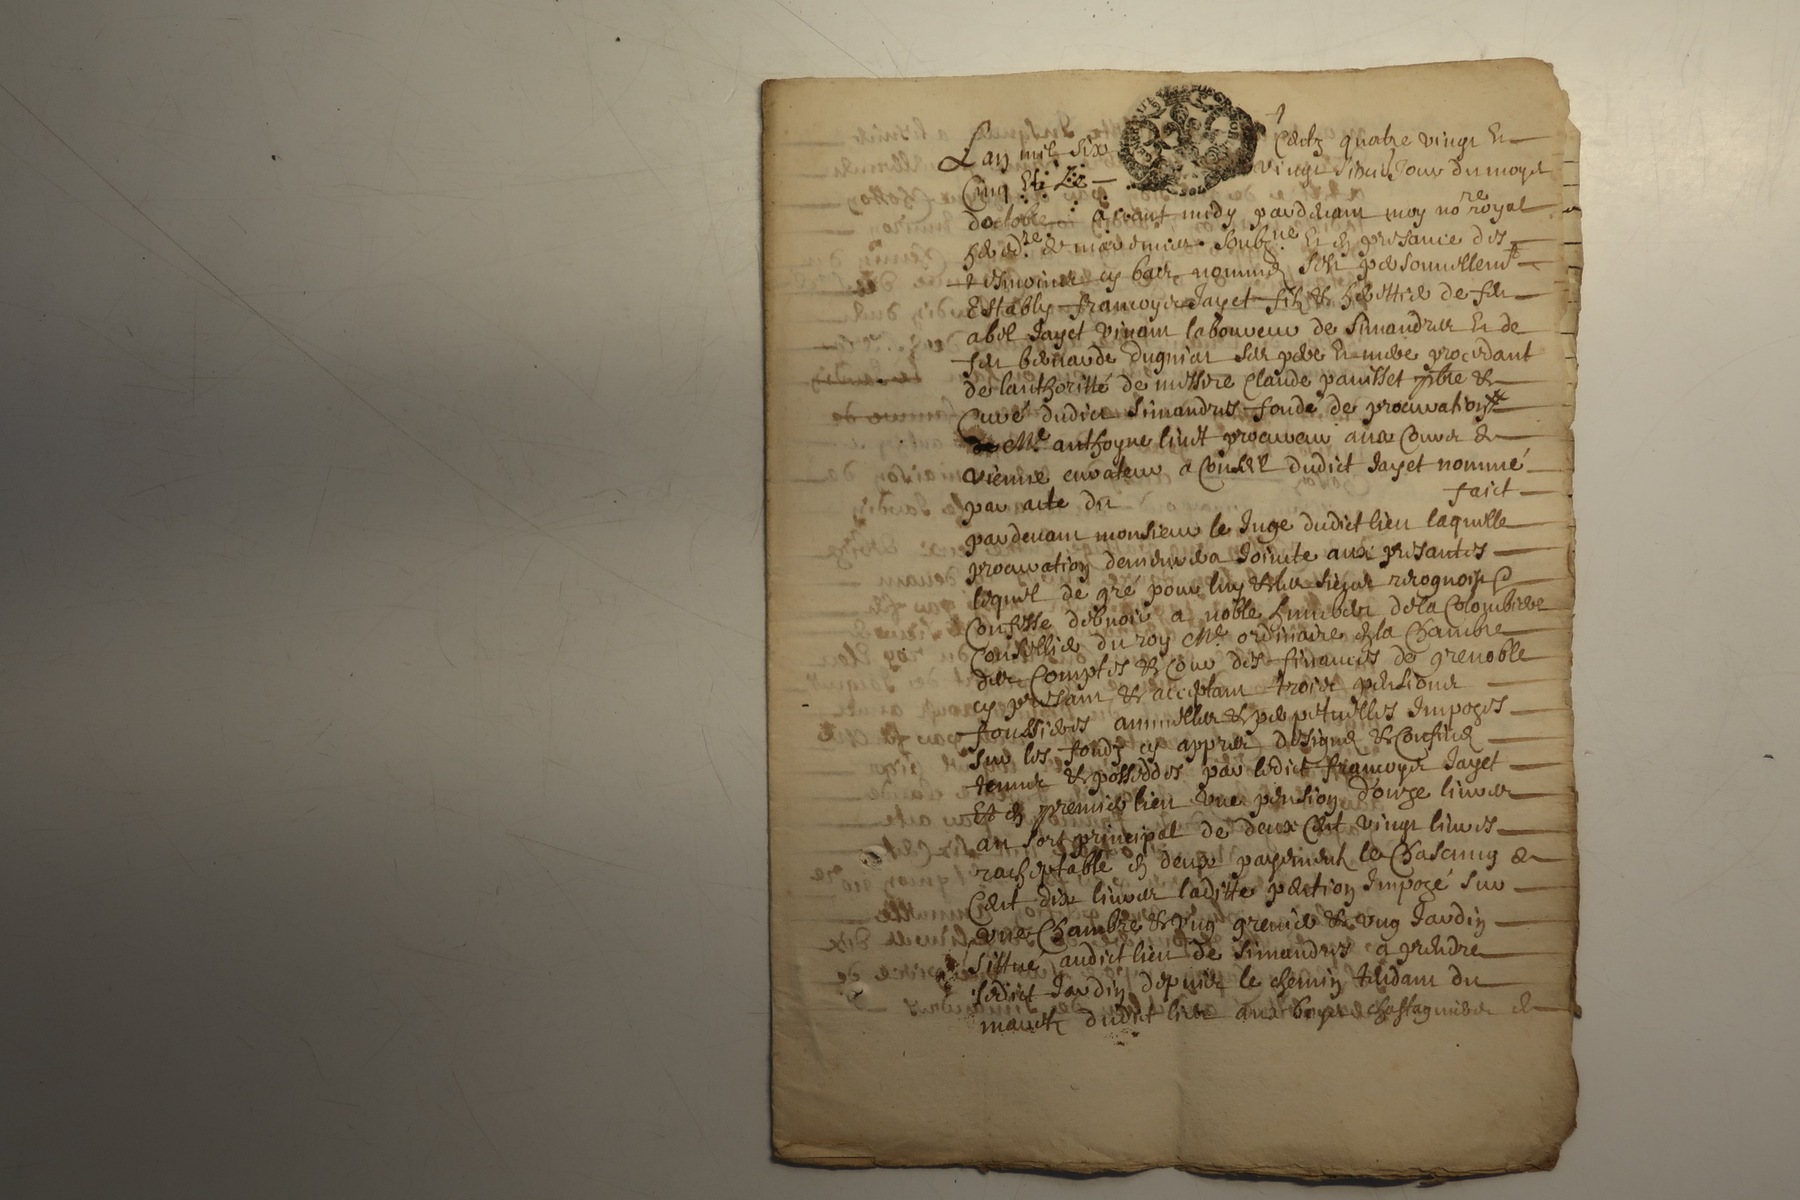 Lan mil six Centz quatre vingt Et
Cinq Et Le vingt sixie Jour du moys
doctobre avant midy pardevant moy no re royal
her edre de soubz ne Et en presance des
tesmoings cy bas nommés sest personnellemt
Estably francoys Jayet filz & heritier de feu
abel Jayet vivant laboureur de simandres Et de
feu bernarde dugniat ses pere Et mere procedant
de lauthoritté de messire Claude panisset pbre &
Curé dudict simandres fondé de procuration
de Me anthoyne procureur aux Cours de
vienne curateur a Conseil dudict Jayet nommé
par acte du faict
pardevant monsieur le Juge dudict lieu laquelle
procuration demeurera Jointe aux presantes
lequel de gré pour luy & les siens recognoist &
Confesse debvoir a noble de la Colombiere
Conseillier du roy Me ordinaire en la Chambre
des Comptes & Cour des finances de grenoble
cy presant & acceptant trois pensions
fonssieres annuelles & perpetuelles Imposes
sur les fondz cy apprès designés & Confinés
tenus & possedes par ledict francoys Jayet
Et en premier lieu une pension donze livres
au sort principal de deux Cent vingt livres
racheptable en deux payements le Chascung de
Cent dix livres laditte pention Impozé sur
une Chambre & ung grenier & ung Jardin
sittué audict lieu de simandres a prendre
ledict Jardin depuis le chemin tendant du
dudict lieu aux chastagniers &